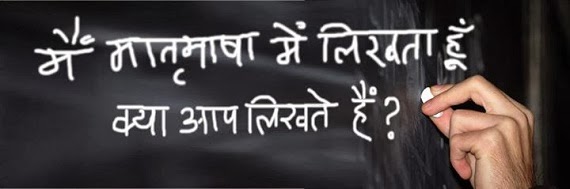 मैं मातृभाषा में लिखता हूँ
क्या आप लिखते हैं?